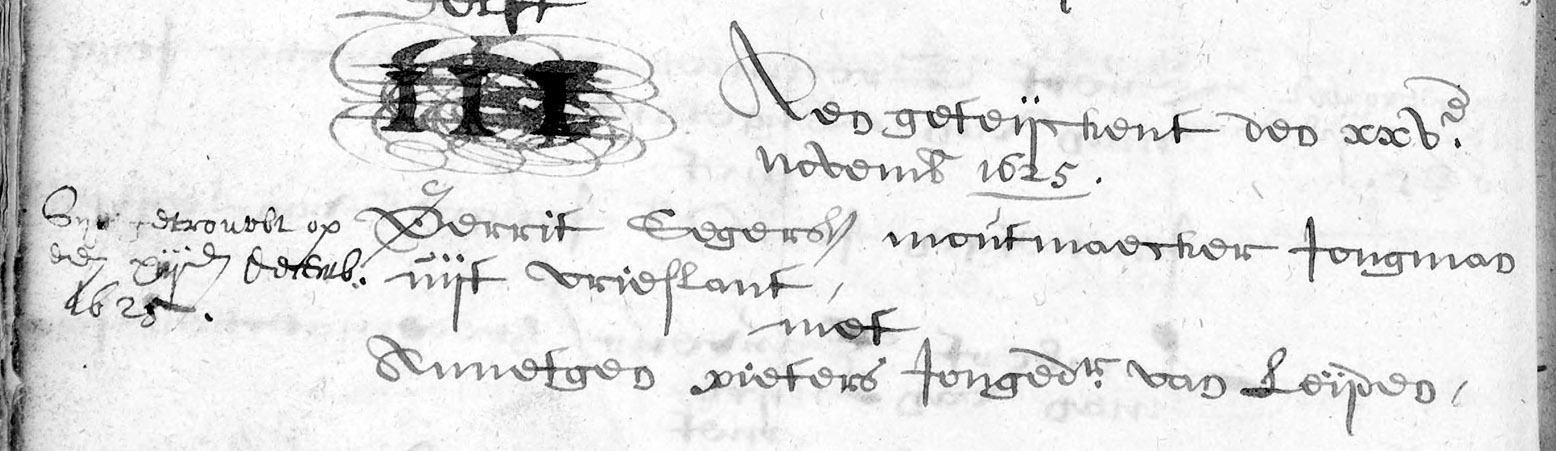 Delft
III
Aengeteijckent den xxve.
novemb 1625.
Sijn getrouwt op
den xiijen decemb:
1625.
Gerrit Segersz moutmaecker Jongman
uijt vrieslant,
met
Annetgen pieters Jongedr. van Leijden,